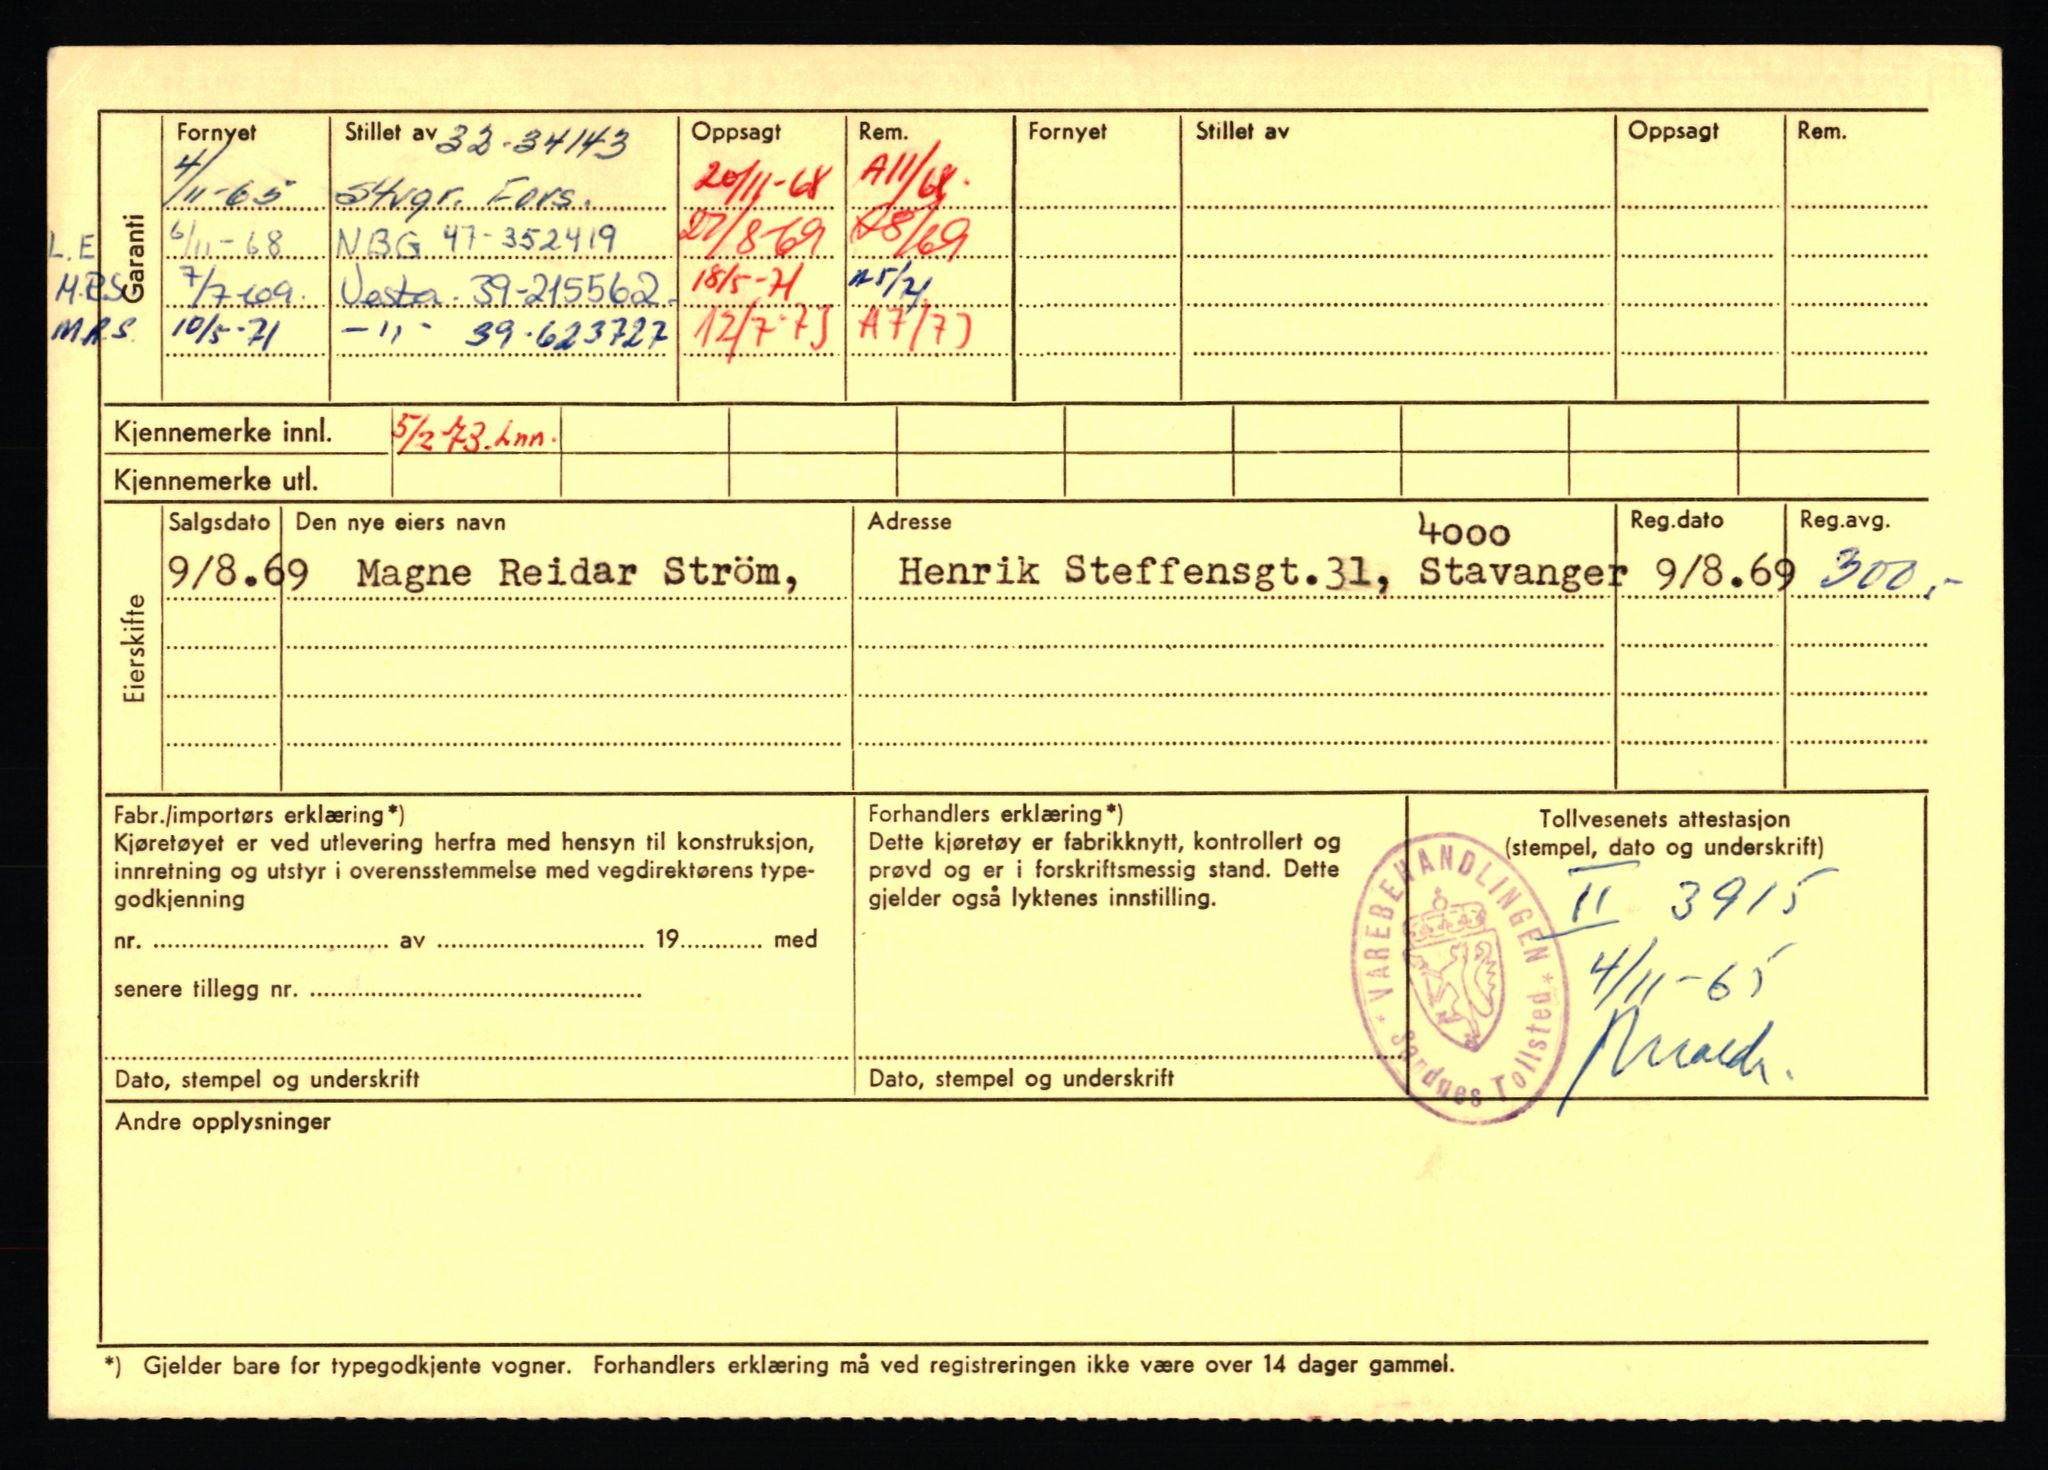 Garanti
Fornyet Stillet av 32-34143 Oppsagt Rem. Fornyet Stillet av Oppsagt Rem.
4/11-65 Stvgr. Fors. 20/11-68 A11/68.
L.E 6/11-68 NBG 47-352419 27/8-69 A8/69
M.R.S 7/7-69. Vesta. 39-215562. 18/5-71 A5/71
M.R.S. 10/5-71 -"- 39-623727 12/7-73 A7/73
Kjennemerke innl. 5/2-73. Lnn.
Kjennemerke utl.
Eierskifte
Salgsdato Den nye eiers navn Adresse Reg.dato Reg.avg.
4000
9/8.69 Magne Reidar Ström, Henrik Steffensgt.31, Stavanger 9/8.69 300,-
Fabr./importørs erklæring*)
Kjøretøyet er ved utlevering herfra med hensyn til konstruksjon,
innretning og utstyr i overensstemmelse med vegdirektørens type-
godkjenning
nr. ................ av ................ 19............ med
senere tillegg nr. ................
Dato, stempel og underskrift
Forhandlers erklæring*)
Dette kjøretøy er fabrikknytt, kontrollert og
prøvd og er i forskriftsmessig stand. Dette
gjelder også lyktenes innstilling.
Dato, stempel og underskrift
Tollvesenets attestasjon
(stempel, dato og underskrift)
II 3915
4/11-65
* VAREBEHANDLINGEN *
Sandnes Tollsted
Andre opplysninger
*) Gjelder bare for typegodkjente vogner. Forhandlers erklæring må ved registreringen ikke være over 14 dager gammel.